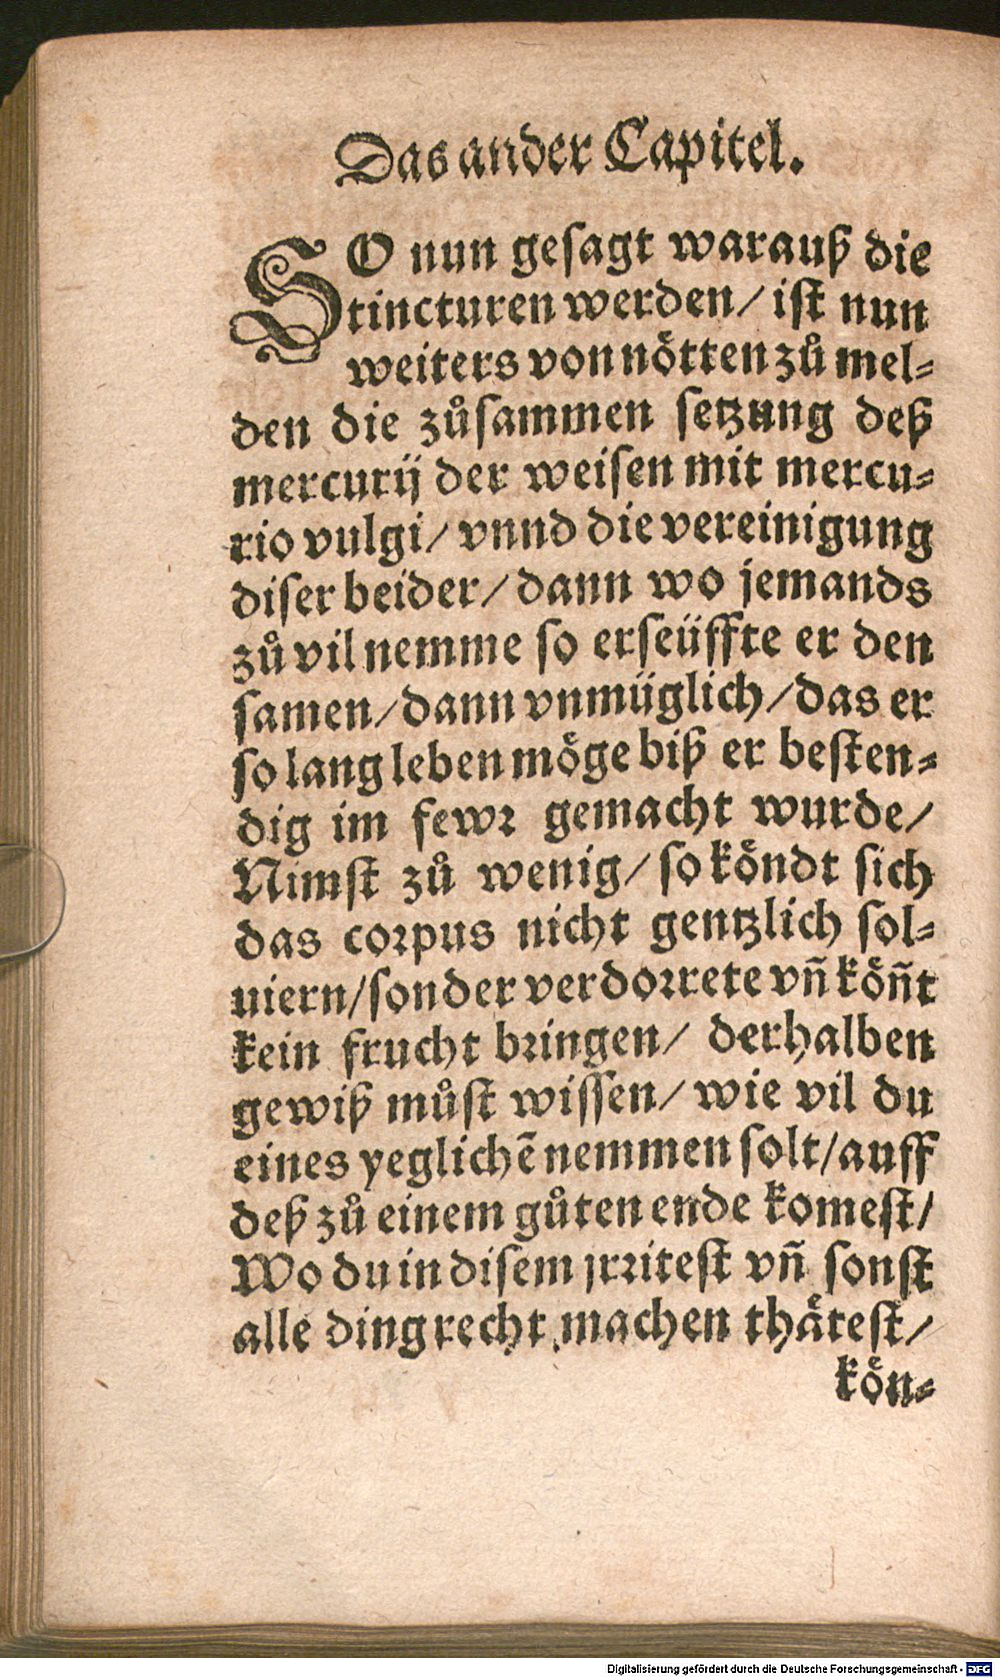 Das ander Capitel.
SO nun gesagt warauß die
tincturen werden/ ist nun
weiters von nötten zů mel⸗
den die zůsammen setzung deß
mercurij der weisen mit mercu⸗
rio vulgi/ vnnd die vereinigung
diser beider/ dann wo jemands
zů vil nemme so erseüffte er den
samen/ dann vnmüglich/ das er
so lang leben möge biß er besten⸗
dig im fewr gemacht wurde/
Nimst zů wenig/ so köndt sich
das corpus nicht gentzlich sol⸗
uiern/ sonder verdorrete vñ köñt
kein frucht bringen/ derhalben
gewiß můst wissen/ wie vil du
eines yeglichẽ nemmen solt/ auff
deß zů einem gůten ende komest/
Wo du in disem jrritest vñ sonst
alle ding recht machen thåtest/
kön⸗
Digitalisierung gefördert durch die Deutsche Forschungsgemeinschaft - DFG